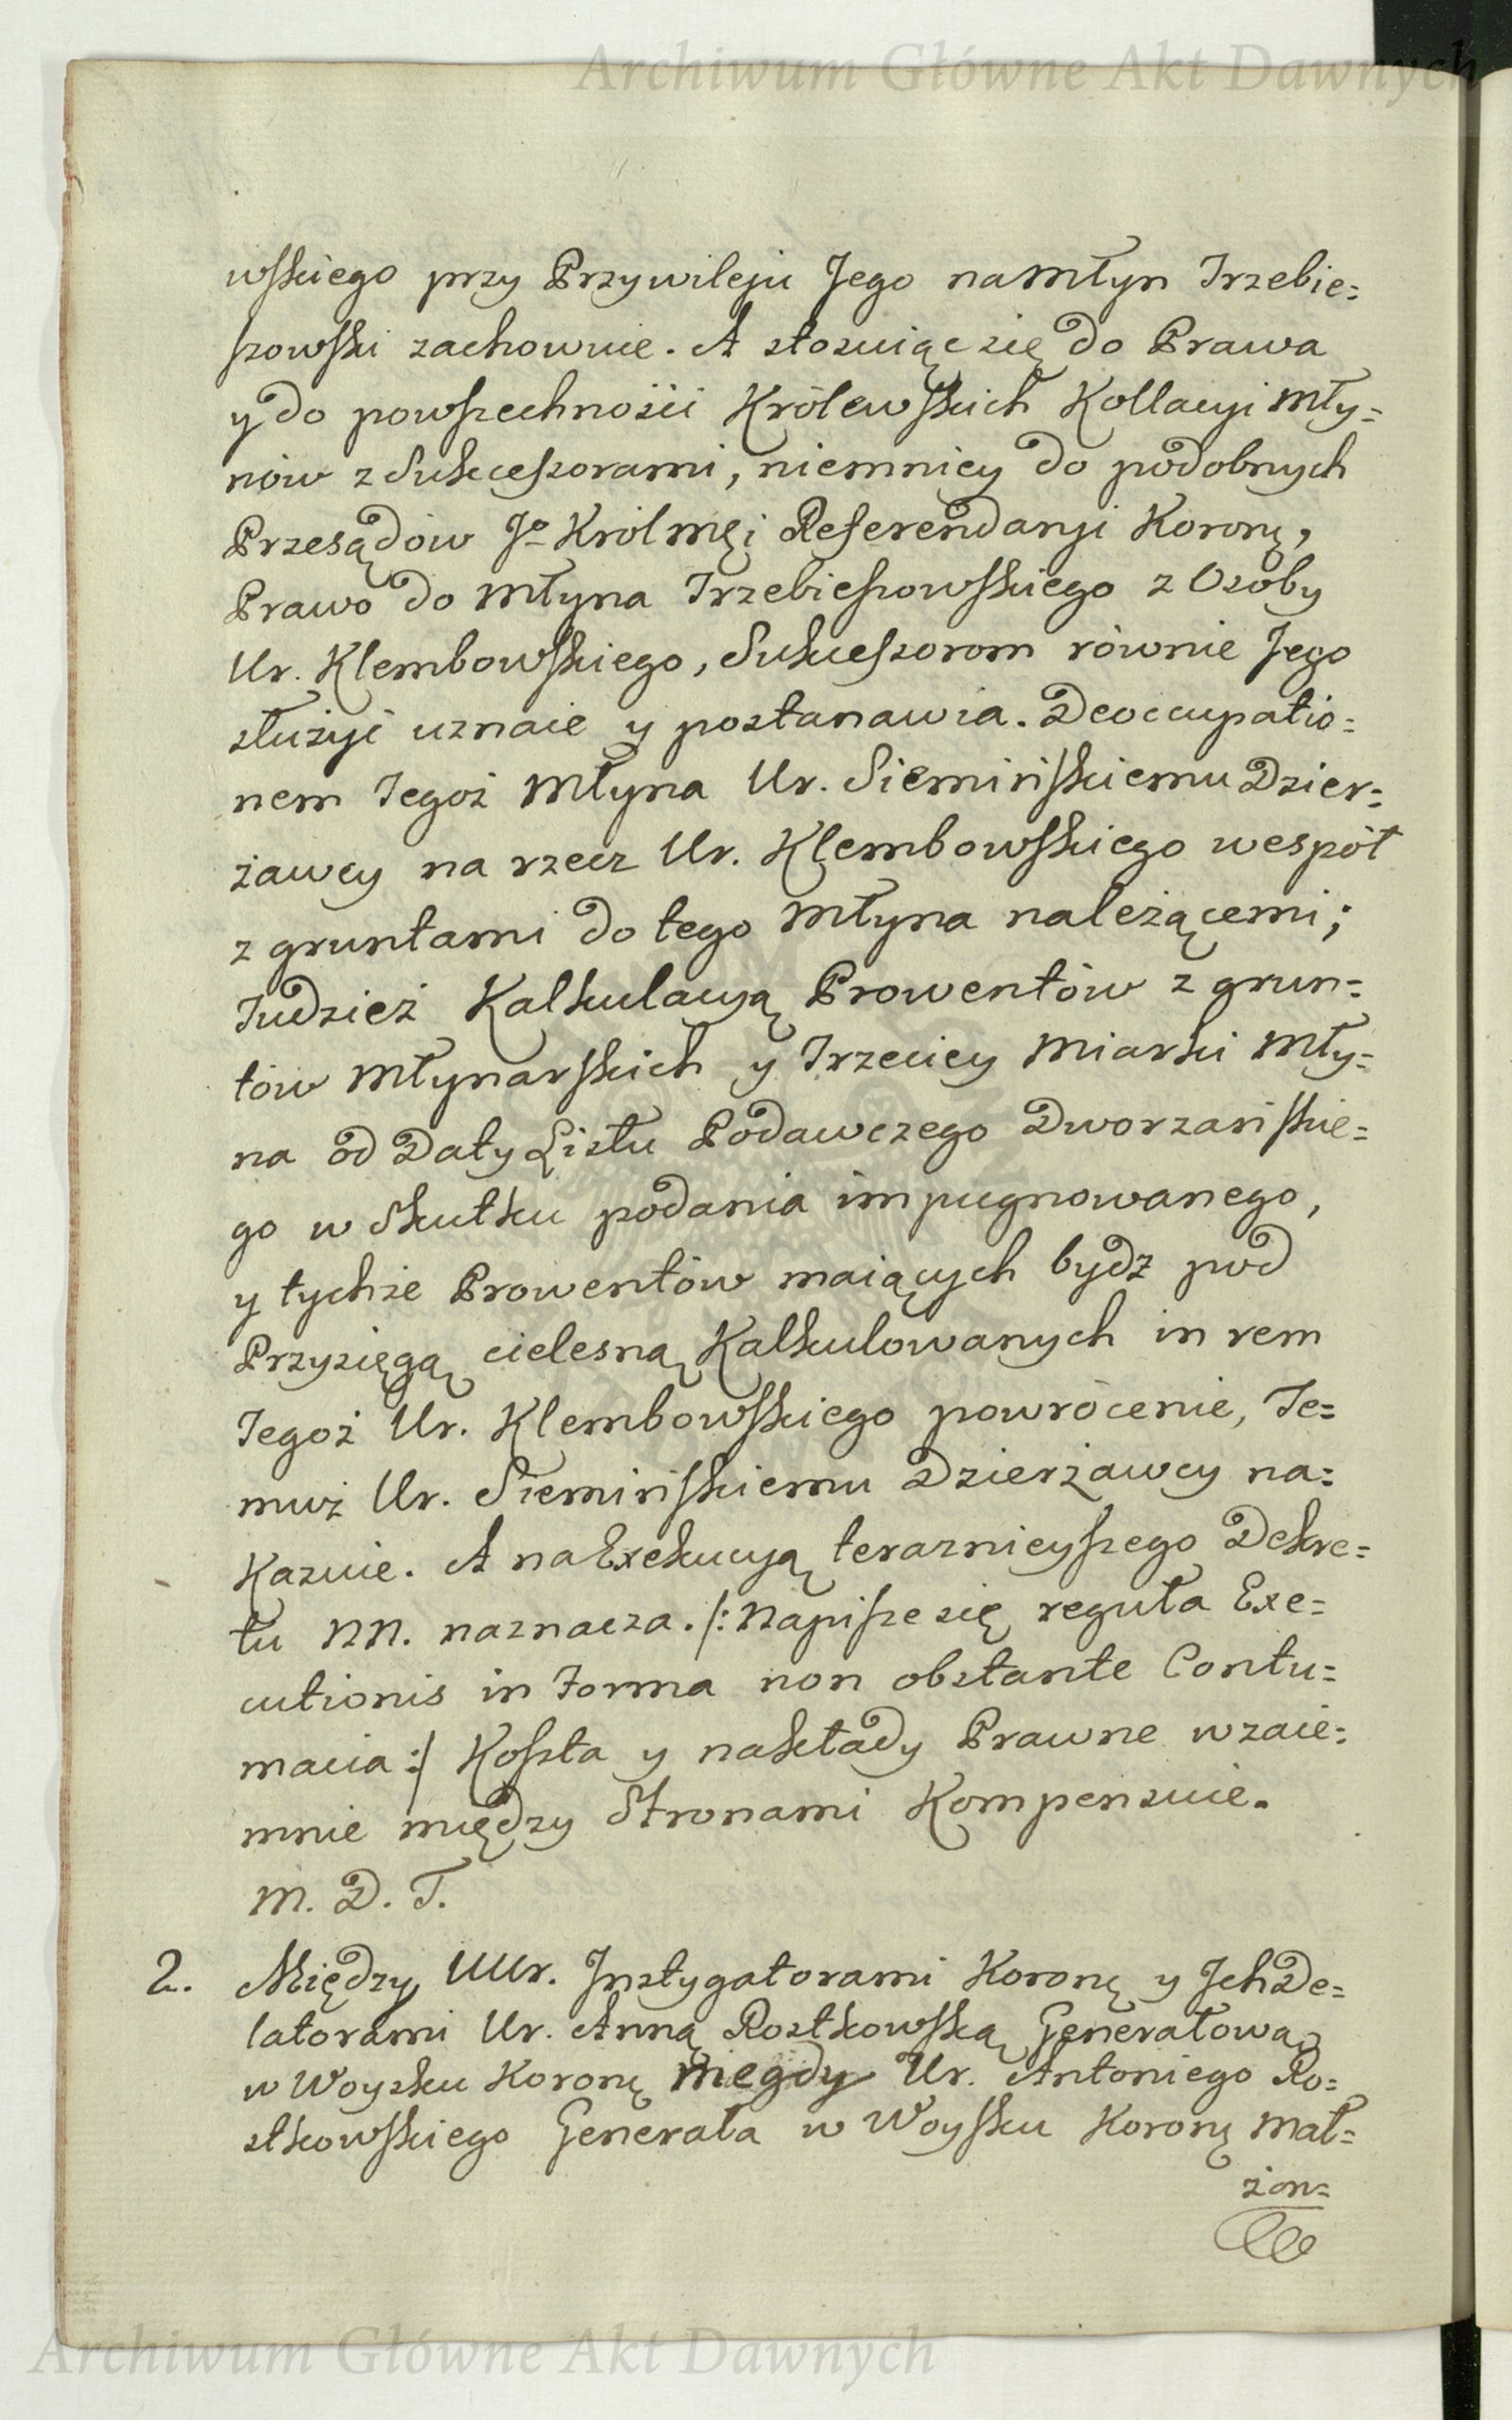 Archiwum Główne Akt Dawnych
wskiego przy Przywileju Jego na Młyn Trzebie=
szowski zachowuie. A stosuiąc się do Prawa
y do powszechności Królewskich Kollacyi Mły=
nów z Sukcessorami, niemniey do podobnych
Przesądów Jo Król mci Referendaryi Koronę,
Prawo do Młyna Trzebieszowskiego z Osoby
Ur. Klembowskiego, Sukcessorom równie Jego
służyć uznaie y postanawia. Deoccupatio=
nem Tegoż Młyna Ur. Siemińskiemu Dzier=
żawcy na rzecz Ur. Klembowskiego wespół
z gruntami do tego Młyna należącemi;
Tudzież Kalkulacyą Prowentów z grun=
tów Młynarskich y Trzeciey Miarki Mły=
na od Daty Listu Podawczego Dworzańskie=
go w Skutku podania impugnowanego,
y tychże Prowentów maiących bydź pod
Przysięgą cielesną Kalkulowanych in rem
Tegoż Ur. Klembowskiego powrócenie, Te=
muż Ur. Siemińskiemu Dzierżawcy na=
kazuie. A na Exekucyą teraznieyszego Dekre=
tu NN. naznacza. /: Napisze się reguła Exe=
cutionis in Forma non obstante Contu=
macia :/ Koszta y nakłady Prawne wzaie=
mnie między Stronami Kompensuie.
M. D. T.
2. Między UUr. Instygatorami Koronę y Ich De=
latorami Ur. Anną Rostkowską Generałową
w Woysku Koronę niegdy Ur. Antoniego Ro=
stkowskiego Generała w Woysku Koronę Mał=
żon=
Archiwum Główne Akt Dawnych